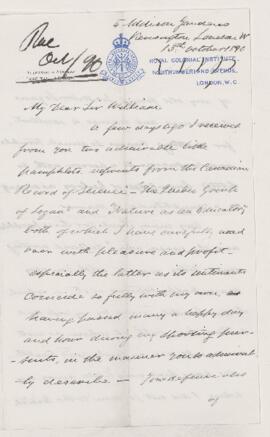 Rae
Oct/90
4 Addison Gardens
Kensington, London W
18th October 1890
ROYAL COLONIAL INSTITUTE,
NORTHUMBERLAND AVENUE,
LONDON, W.C
My Dear Sir William
A few days ago I received
from you two admirable little
pamphlets reprints from the Canadian
Record of Science – The Quebec Group
of Logan and Nature as an Educator,
both of which I have carefully read
over with pleasure and profit –
especially the latter as its sentiments
coincide so fully with my own,
having passed many a happy day
and hour during my shooting pur-
suits, in the manner you so admira-
bly describe – Your defence also